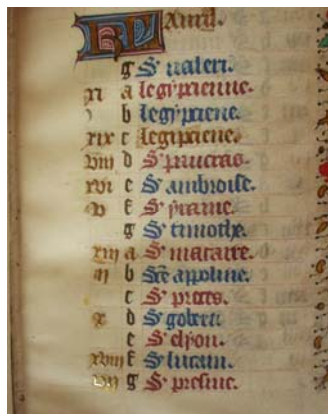 KL Auril.
g S' ualeri.
xi a legypcienne.
b legypciene.
xix c legipciene.
viii d S' pancras.
xvi e S' ambroise.
v f
g S' timothe.
xiii a S' macaire.
ii b Sce appoline.
c S'
x d S' gobert
e S'
xviii f S' lucain.
vii g S'